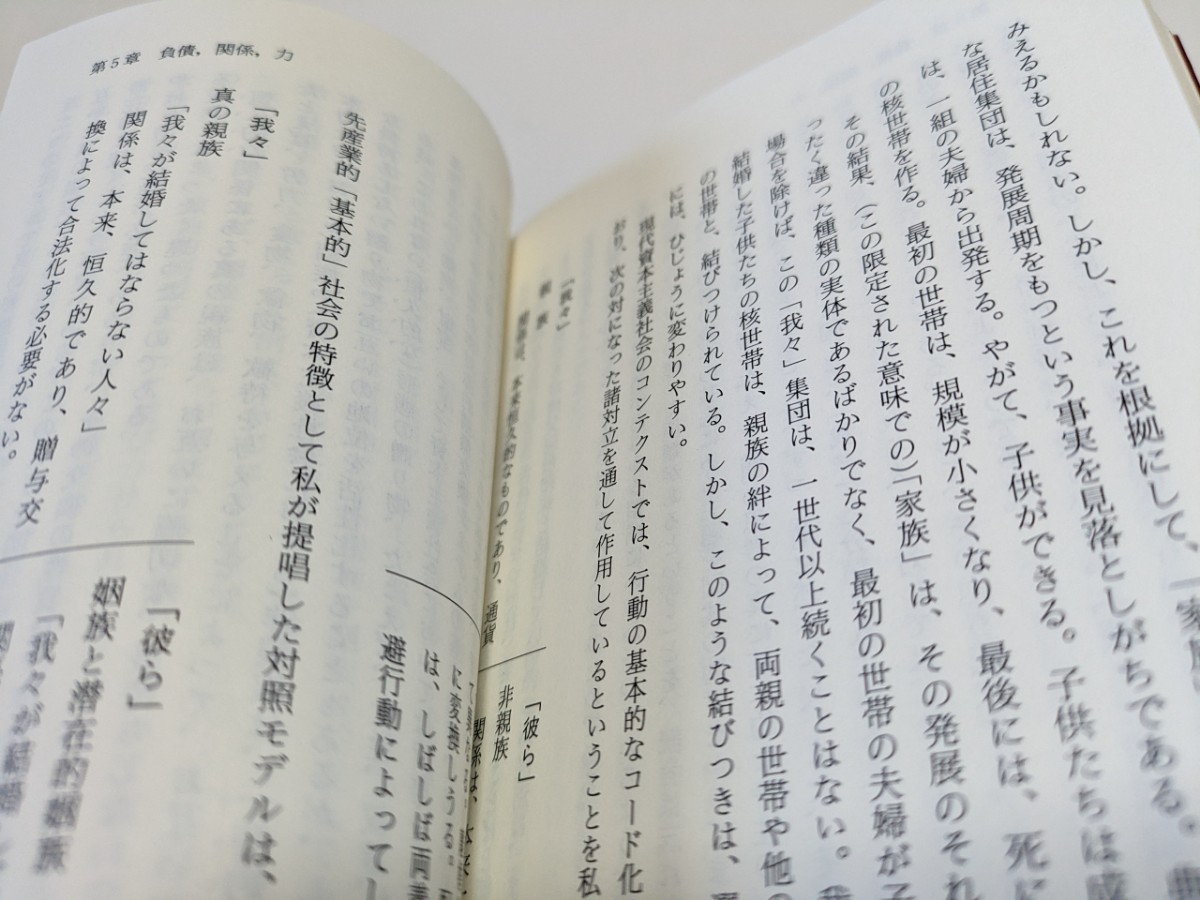 みえるかもしれない。しかし、これを根拠にして、一家
な居住集団は、発展周期をもつという事実を見落としがちである。
は、一組の夫婦から出発する。やがて、子供ができる。子供たちは成
の核世帯を作る。最初の世帯は、規模が小さくなり、最後には、死に
その結果、(この限定された意味での)「家族」は、その発展のそれ
ったく違った種類の実体であるばかりでなく、最初の世帯の夫婦が子
場合を除けば、この「我々」集団は、一世代以上続くことはない。
結婚した子供たちの核世帯は、親族の絆によって、両親の世帯や他の
の世帯と、結びつけられている。しかし、このような結びつきは、
には、ひじょうに変わりやすい。
現代資本主義社会のコンテクストでは、行動の基本的なコード化
おり、次の対になった諸対立を通して作用しているということを私
「我々」
親族
関係は、本来恒久的なものであり、通貨
「彼ら」
非親族
関係は、
に変換しうる
は、しばしば両義
避行動によってし
第5章 負債,関係,力
先産業的「基本的」社会の特徴として私が提唱した対照モデルは、
「我々」
真の親族
「我々が結婚してはならない人々」
関係は、本来、恒久的であり、贈与交
換によって合法化する必要がない。
「彼ら」
姻族と潜在的姻族
「我々が結婚し